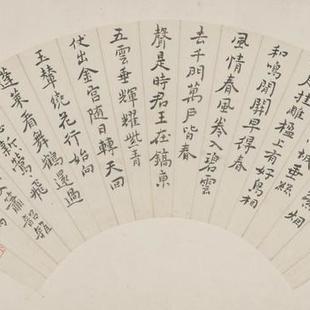 挂雕楹上有好鳥相
和鳴間關早得春
風情春風卷入碧雲
去千門萬戶皆春
聲是時君王在鎬
五雲垂輝耀紫青
仗出金宮随日轉天回
玉輦繞花行始向
蓬萊看舞鶴還過
新鶯飛
簫韶